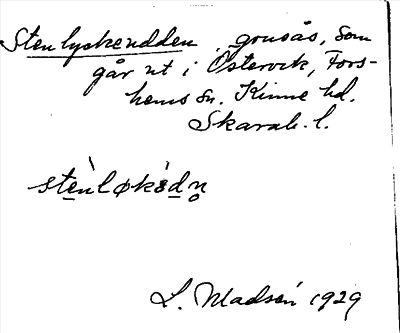 Stenlyckeudden, grusås, som
går ut i Östervik, Fors-
hems sn. Kinne hd.
Skarab. l.
stènløkùdn̥
L. Madsén 1929